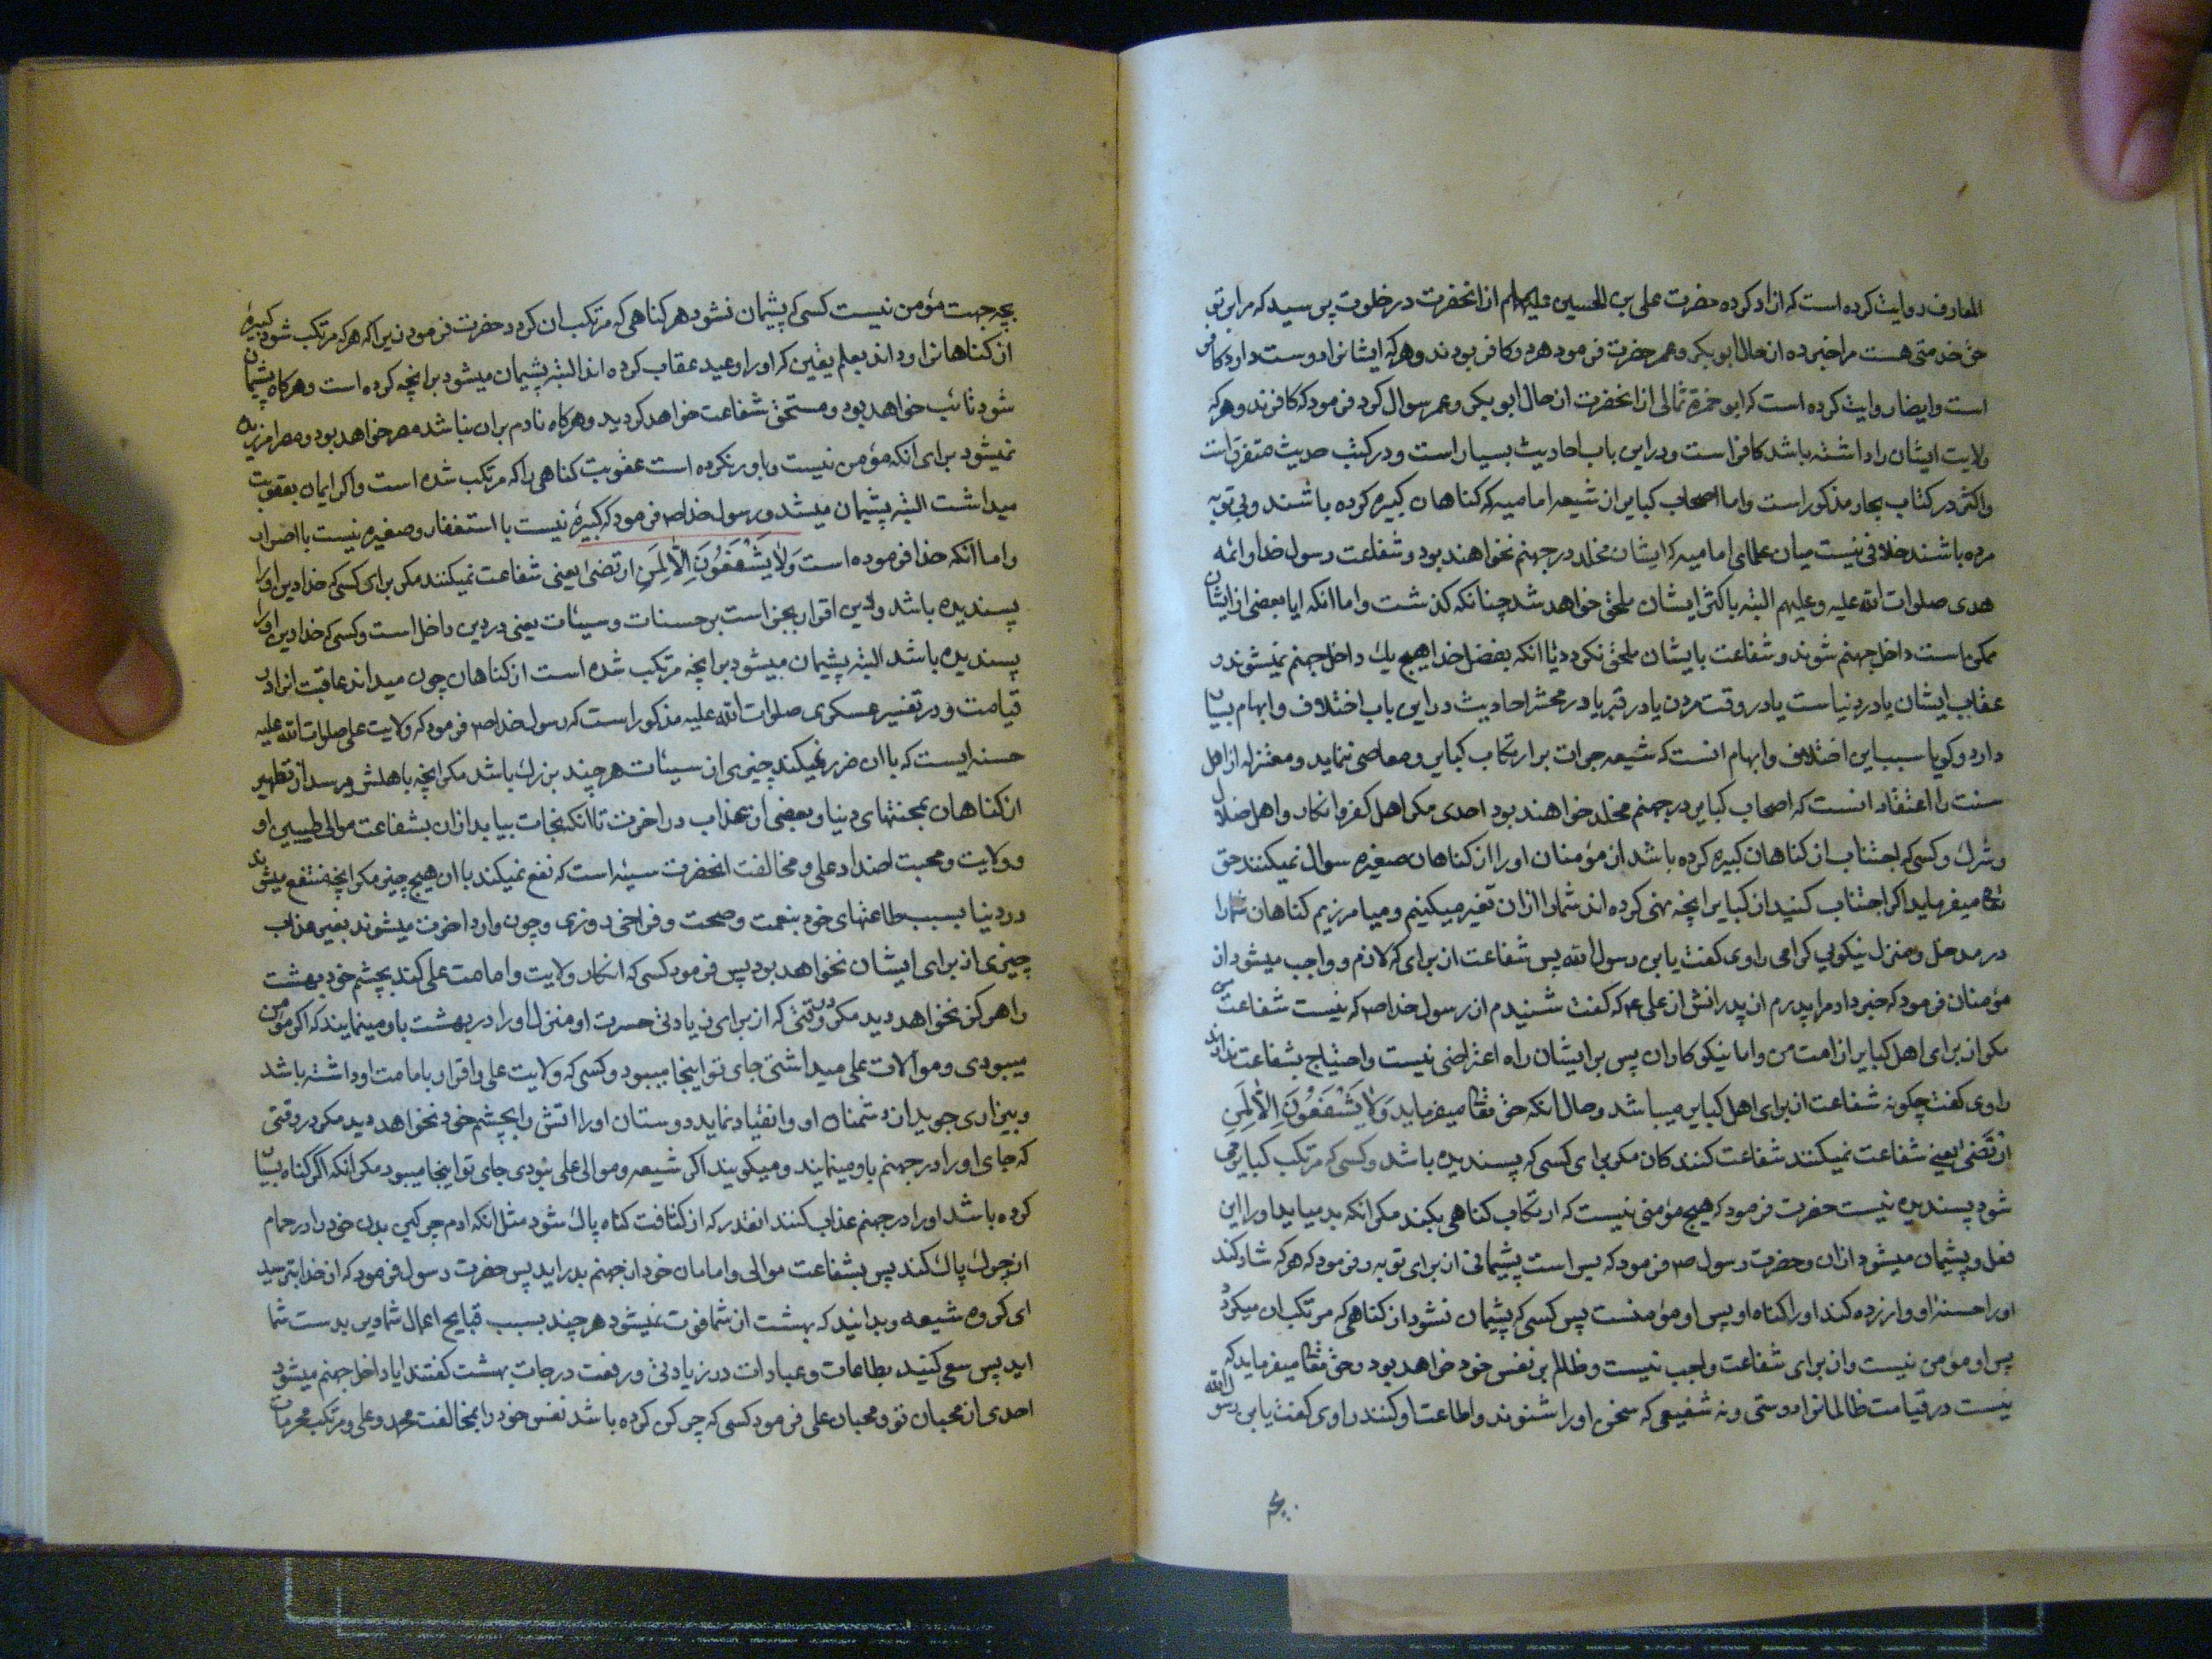 المعارف روایت کرده است که ازاد کرده حضرت علی بن الحسین علیهالسلام از انحضرت در خلوت پرسید که مرا بر تو
حق خدمتی هست مرا خبر ده از حال ابوبکر و عمر حضرت فرمود هر دو کافر بودند و هر که ایشانرا دوست دارد کافر
است و ایضا روایت کرده است که ابو حمزه ثمالی از انحضرت از حال ابوبکر و عمر سوال کرد فرمود که کافرند و هر که
ولایت ایشان را داشته باشد کافر است و در این باب احادیث بسیار است و در کتب حدیث متفرق است
و اکثر در کتاب بحار مذکور است و اما اصحاب کبایر از شیعه امامیه که کناهان کبیره کرده باشند و بی توبه
مرده باشند خلافی نیست میان علمای امامیه که ایشان مخلد در جهنم نخواهند بود و شفاعت رسول خدا و ائمه
هدی صلوات الله علیه و علیهم البته باکثر ایشان ملحق خواهد شد چنانکه کذشت و اما انکه ایا بعضی از ایشان
ممکن است داخل جهنم شوند و شفاعت بایشان ملحق نکردد یا انکه بفضل خدا هیچ یك داخل جهنم نمیشوند و
عقاب ایشان یا در دنیاست یا در وقت مردن یا در قبر یا در محشر احادیث در این باب اختلاف و ابهام بسیار
دارد و کویا سبب این اختلاف و ابهام انست که شیعه جرات بر ارتکاب کبایر و معاصی ننماید و معتزله از اهل
سنت را اعتقاد انست که اصحاب کبایر در جهنم مخلد خواهند بود احدی مکر اهل کفر و انکار و اهل ضلال
و شرك و کسی که اجتناب از کناهان کبیره کرده باشد از مؤمنان او را از کناهان صغیره سوال نمیکنند حق
تعالی میفرماید اکر اجتناب کنید از کبایر انچه نهی کرده اند شما را ازان تکفیر میکنیم و میامرزیم کناهان شما را
در مدخل و منزل نیکویی کرامی راوی کفت یابن رسول الله پس شفاعت از برای که لازم و واجب میشود از
مؤمنان فرمود که خبر داد مرا پدرم از پدرانش از علی ع که کفت شنیدم از رسول خدا ص که نیست شفاعت من
مکر از برای اهل کبایر از امت من و اما نیکو کاران پس بر ایشان راه اعتراضی نیست و احتیاج بشفاعت ندارند
راوی کفت چکونه شفاعت از برای اهل کبایر میباشد و حال انکه حق تعالی میفرماید وَلا یَشْفَعُونَ اِلّا لِمَنِ
ارْتَضی یعنی شفاعت نمیکنند شفاعت کنند کان مکر برای کسی که پسندیده باشد و کسی که مرتکب کبایر می
شود پسندیده نیست حضرت فرمود که هیچ مؤمنی نیست که ارتکاب کناهی بکند مکر انکه بد میاید او را این
فعل و پشیمان میشود ازان و حضرت رسول ص فرمود که بس است پشیمانی از برای توبه و فرمود که هر که شاد کند
او را حسنۀ او و ازرده کند او را کناه او پس او مؤمنست پس کسی که پشیمان نشود از کناهی که مرتکب ان میکردد
پس او مؤمن نیست و از برای شفاعت واجب نیست و ظالم بر نفس خود خواهد بود و حق تعالی میفرماید که
نیست در قیامت ظالمانرا دوستی و نه شفیعی که سخن او را شنوند و اطاعت او کنند راوی کفت یابن رسول الله
بچه جهت مؤمن نیست کسی که پشیمان نشود هر کناهی که مرتکب ان کردد حضرت فرمود زیرا که هر که مرتکب شود کبیرۀ
از کناهانرا و داند بعلم یقین که او را وعید عقاب کرده اند البته پشیمان میشود بر انچه کرده است و هرکاه پشیمان
شود تائب خواهد بود و مستحق شفاعت خواهد کردید و هرکاه نادم بران نباشد مصر خواهد بود و مصر امرزیده
نمیشود برای انکه مؤمن نیست و باور نکرده است عقوبت کناهی را که مرتکب شده است و اکر ایمان بعقوبت
میداشت البته پشیمان میشد و رسول خدا ص فرمود که کبیرۀ نیست با استغفار و صغیره نیست با اصرار
و اما انکه خدا فرموده است وَلا یَشْفَعُونَ اِلّا لِمَنِ ارتضی یعنی شفاعت نمیکنند مکر برای کسی که خدا دین او را
پسندیده باشد و دین اقرار بجزاست بر حسنات و سیئات یعنی در دین داخل است و کسی که خدا دین او را
پسندیده باشد البته پشیمان میشود بر انچه مرتکب شده است از کناهان چون میداند عاقبت انرا در
قیامت و در تفسیر عسکری صلوات الله علیه مذکور است که رسول خدا ص فرمود که ولایت علی صلوات الله علیه
حسنه ایست که با ان ضرر نمیکند چیزی از سیئات هر چند بزرك باشد مکر انچه باهلش میرسد از تطهیر
از کناهان بمحنتهای دنیا و بعضی از عذاب در اخرت تا انکه نجات بیابد ازان بشفاعت موالی طیبین او
و ولایت و محبت اضداد علی و مخالفت انحضرت سیئه است که نفع نمیکند با ان هیچ چیز مکر انچه منتفع میشوند
در دنیا بسبب طاعتهای خود بنعمت و صحت و فراخی روزی و چون وارد اخرت میشوند بغیر عذاب
چیزی از برای ایشان نخواهد بود پس فرمود کسی که انکار ولایت و امامت علی کند بچشم خود بهشت
را هرکز نخواهد دید مکر در وقتی که از برای زیادتی حسرت او منزل او را در بهشت باو مینمایند که اکر مؤمن
میبودی و موالات علی میداشتی جای تو اینجا میبود و کسی که ولایت علی و اقرار بامامت او داشته باشد
و بیزاری جوید از دشمنان او و انقیاد نماید دوستان او را اتش را بچشم خود نخواهد دید مکر در وقتی
که جای او را در جهنم باو مینمایند و میکویند اکر شیعه و موالی علی نبودی جای تو اینجا میبود مکر انکه اکر کناه بسیار
کرده باشد او را در جهنم عذاب کنند انقدر که از کثافت کناه پاك شود مثل انکه ادم چرکین بدن خود را در حمام
از چرك پاك کند پس بشفاعت موالی و امامان خود از جهنم بدر اید پس حضرت رسول فرمود که از خدا بترسید
ای کروه شیعه و بدانید که بهشت از شما فوت نمیشود هر چند بسبب قبایح اعمال شما دیر بدست شما
اید پس سعی کنید بطاعات و عبادات در زیادتی و رفعت درجات بهشت کفتند ایا داخل جهنم میشود
احدی از محبان تو و محبان علی فرمود کسی که چرکن کرده باشد نفس خود را بمخالفت محمد و علی و مرتکب محرمات